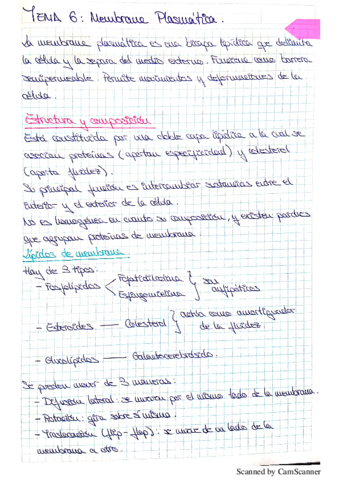 TEMA 6: Membrana Plasmática.
La membrana plasmática es una bicapa lipídica que delimita
la célula y la separa del medio externo. Funciona como barrera
semipermeable. Permite movimientos y deformaciones de la
célula.
Estructura y composición
Está constituida por una doble capa lipídica a la cual se
asocian proteínas (aportan especificidad) y colesterol
(aporta fluidez).
Su principal función es intercambiar sustancias entre el
interior y el exterior de la célula.
No es homogénea en cuanto su composición, y existen parches
que agrupan proteínas de membrana.
Lípidos de membrana
Hay de 3 tipos:
- Fosfolípidos
Fosfatidilcolina
Esfingomielina
son
anfipáticos
- Esteroides — Colesterol
actúa como amortiguador
de la fluidez.
- Glucolípidos — Galactocerebrósido.
Se pueden mover de 3 maneras:
- Difusión lateral: se mueven por el mismo lado de la membrana.
- Rotación: gira sobre sí misma.
- Traslocación (flip-flop): se mueve de un lado de la
membrana a otro.
Scanned by CamScanner